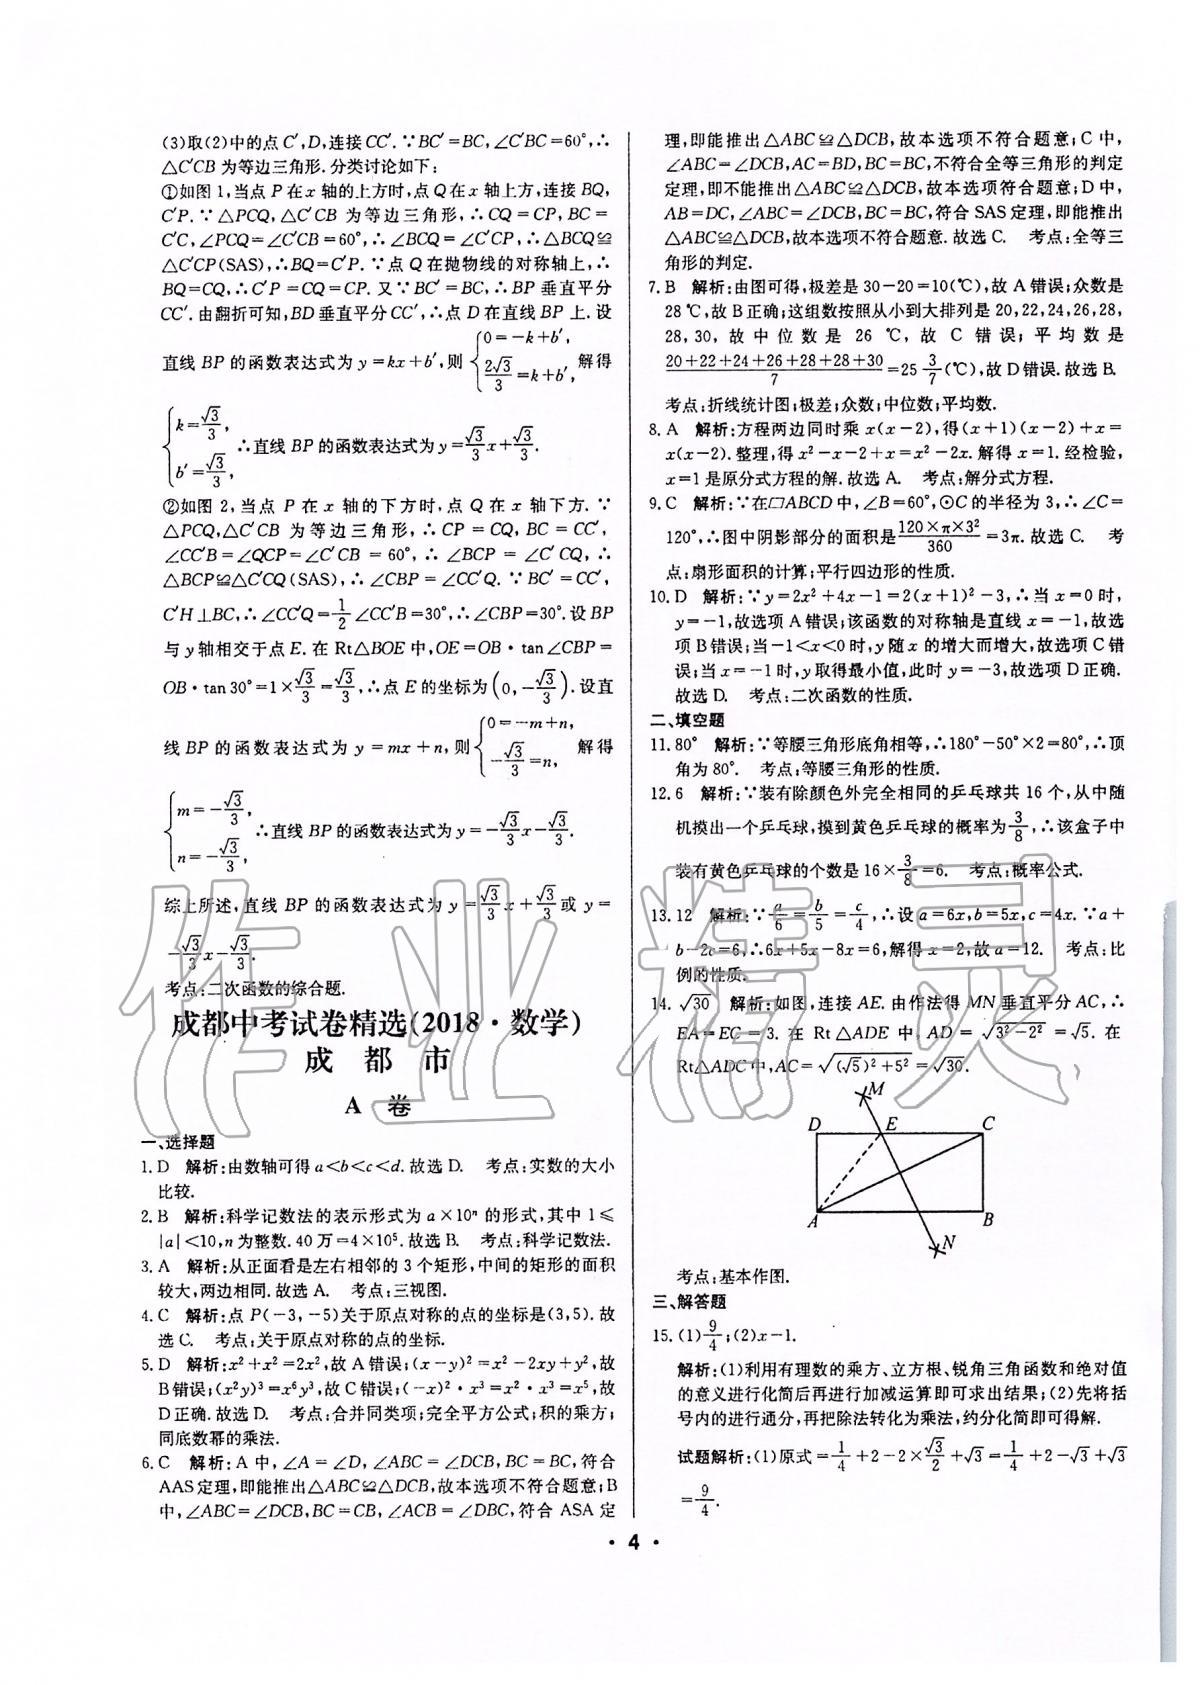 (3)取(2)中的点 C′,D,连接 CC′. ∵BC′=BC,∠C′BC=60°,∴
△C′CB 为等边三角形. 分类讨论如下:
①如图 1,当点 P 在 x 轴的上方时,点 Q 在 x 轴上方,连接 BQ,
C′P. ∵△PCQ,△C′CB 为等边三角形,∴CQ=CP,BC=
C′C,∠PCQ=∠C′CB=60°,∴∠BCQ=∠C′CP,∴△BCQ≌
△C′CP(SAS),∴BQ=C′P. ∵点 Q 在抛物线的对称轴上,∴
BQ=CQ,∴C′P=CQ=CP. 又∵BC′=BC,∴BP 垂直平分
CC′. 由翻折可知,BD 垂直平分 CC′,∴点 D 在直线 BP 上. 设
直线 BP 的函数表达式为 y=kx+b′,则 {0=-k+b′, 2√3/3=k+b′, 解得
{k=√3/3, b′=√3/3, ∴直线 BP 的函数表达式为 y=√3/3x+√3/3.
②如图 2,当点 P 在 x 轴的下方时,点 Q 在 x 轴下方. ∵
△PCQ,△C′CB 为等边三角形,∴CP=CQ,BC=CC′,
∠CC′B=∠QCP=∠C′CB=60°,∴∠BCP=∠C′CQ,∴
△BCP≌△C′CQ(SAS),∴∠CBP=∠CC′Q. ∵BC′=CC′,
C′H⊥BC,∴∠CC′Q=1/2∠CC′B=30°,∴∠CBP=30°. 设 BP
与 y 轴相交于点 E. 在 Rt△BOE 中,OE=OB·tan∠CBP=
OB·tan30°=1×√3/3=√3/3,∴点 E 的坐标为(0,-√3/3). 设直
线 BP 的函数表达式为 y=mx+n,则 {0=-m+n, -√3/3=n, 解得
{m=-√3/3, n=-√3/3, ∴直线 BP 的函数表达式为 y=-√3/3x-√3/3.
综上所述,直线 BP 的函数表达式为 y=√3/3x+√3/3或 y=
-√3/3x-√3/3.
考点:二次函数的综合题.
成都中考试卷精选(2018·数学)
成 都 市
A 卷
一、选择题
1. D 解析:由数轴可得 a<b<c<d. 故选 D. 考点:实数的大小
比较.
2. B 解析:科学记数法的表示形式为 a×10ⁿ 的形式,其中 1≤
|a|<10,n 为整数. 40 万=4×10⁵. 故选 B. 考点:科学记数法.
3. A 解析:从正面看是左右相邻的 3 个矩形,中间的矩形的面积
较大,两边相同. 故选 A. 考点:三视图.
4. C 解析:点 P(-3,-5)关于原点对称的点的坐标是(3,5). 故
选 C. 考点:关于原点对称的点的坐标.
5. D 解析:x²+x²=2x²,故 A 错误;(x-y)²=x²-2xy+y²,故
B 错误;(x²y)³=x⁶y³,故 C 错误;(-x)²·x³=x²·x³=x⁵,故
D 正确. 故选 D. 考点:合并同类项;完全平方公式;积的乘方;
同底数幂的乘法.
6. C 解析:A 中,∠A=∠D,∠ABC=∠DCB,BC=BC,符合
AAS 定理,即能推出△ABC≌△DCB,故本选项不符合题意;B
中,∠ABC=∠DCB,BC=CB,∠ACB=∠DBC,符合 ASA 定
理,即能推出△ABC≌△DCB,故本选项不符合题意;C 中,
∠ABC=∠DCB,AC=BD,BC=BC,不符合全等三角形的判定
定理,即不能推出△ABC≌△DCB,故本选项符合题意;D 中,
AB=DC,∠ABC=∠DCB,BC=BC,符合 SAS 定理,即能推出
△ABC≌△DCB,故本选项不符合题意. 故选 C. 考点:全等三
角形的判定.
7. B 解析:由图可得,极差是 30-20=10(℃),故 A 错误;众数是
28 ℃,故 B 正确;这组数按照从小到大排列是 20,22,24,26,28,
28,30,故中位数是 26 ℃,故 C 错误;平均数是
(20+22+24+26+28+28+30)/7=25 3/7(℃),故 D 错误. 故选 B.
考点:折线统计图;极差;众数;中位数;平均数.
8. A 解析:方程两边同时乘 x(x-2),得(x+1)(x-2)+x=
x(x-2). 整理,得 x²-x-2+x=x²-2x. 解得 x=1. 经检验,
x=1 是原分式方程的解. 故选 A. 考点:解分式方程.
9. C 解析:∵在▱ABCD 中,∠B=60°,⊙C 的半径为 3,∴∠C=
120°,∴图中阴影部分的面积是120×π×3²/360=3π. 故选 C. 考
点:扇形面积的计算;平行四边形的性质.
10. D 解析:∵y=2x²+4x-1=2(x+1)²-3,∴当 x=0 时,
y=-1,故选项 A 错误;该函数的对称轴是直线 x=-1,故选
项 B 错误;当-1<x<0 时,y 随 x 的增大而增大,故选项 C 错
误;当 x=-1 时,y 取得最小值,此时 y=-3,故选项 D 正确.
故选 D. 考点:二次函数的性质.
二、填空题
11. 80° 解析:∵等腰三角形底角相等,∴180°-50°×2=80°,∴顶
角为 80°. 考点:等腰三角形的性质.
12. 6 解析:∵装有除颜色外完全相同的乒乓球共 16 个,从中随
机摸出一个乒乓球,摸到黄色乒乓球的概率为3/8,∴该盒子中
装有黄色乒乓球的个数是 16×3/8=6. 考点:概率公式.
13. 12 解析:∵a/6=b/5=c/4,∴设 a=6x,b=5x,c=4x. ∵a+
b-2c=6,∴6x+5x-8x=6,解得 x=2,故 a=12. 考点:比
例的性质.
14. √30 解析:如图,连接 AE. 由作法得 MN 垂直平分 AC,∴
EA=EC=3. 在 Rt△ADE 中,AD=√(3²-2²)=√5. 在
Rt△ADC 中,AC=√((√5)²+5²)=√30.
M
D E C
A B
N
考点:基本作图.
三、解答题
15. (1)9/4;(2)x-1.
解析:(1)利用有理数的乘方、立方根、锐角三角函数和绝对值
的意义进行化简后再进行加减运算即可求出结果;(2)先将括
号内的进行通分,再把除法转化为乘法,约分化简即可得解.
试题解析:(1)原式=1/4+2-2×√3/2+√3=1/4+2-√3+√3
=9/4.
· 4 ·
作业精灵